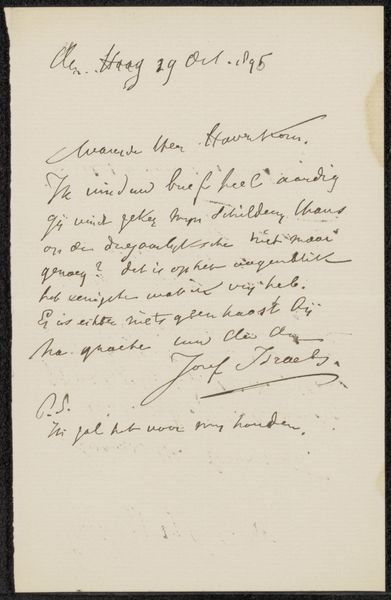 Den Haag 29 Oct. 1895
Waarde Heer Haverkorn.
Ik vind uw brief heel aardig
gij vindt zeker mijn schildery thans
op de driejaarlyksche niet mooi
genoeg? dit is op het oogenblik
het eenigste wat ik vrij heb.
Er is echter niets geen haast bij
na groete
Jozef Israels.
P.S.
Ik zal het voor my houden.